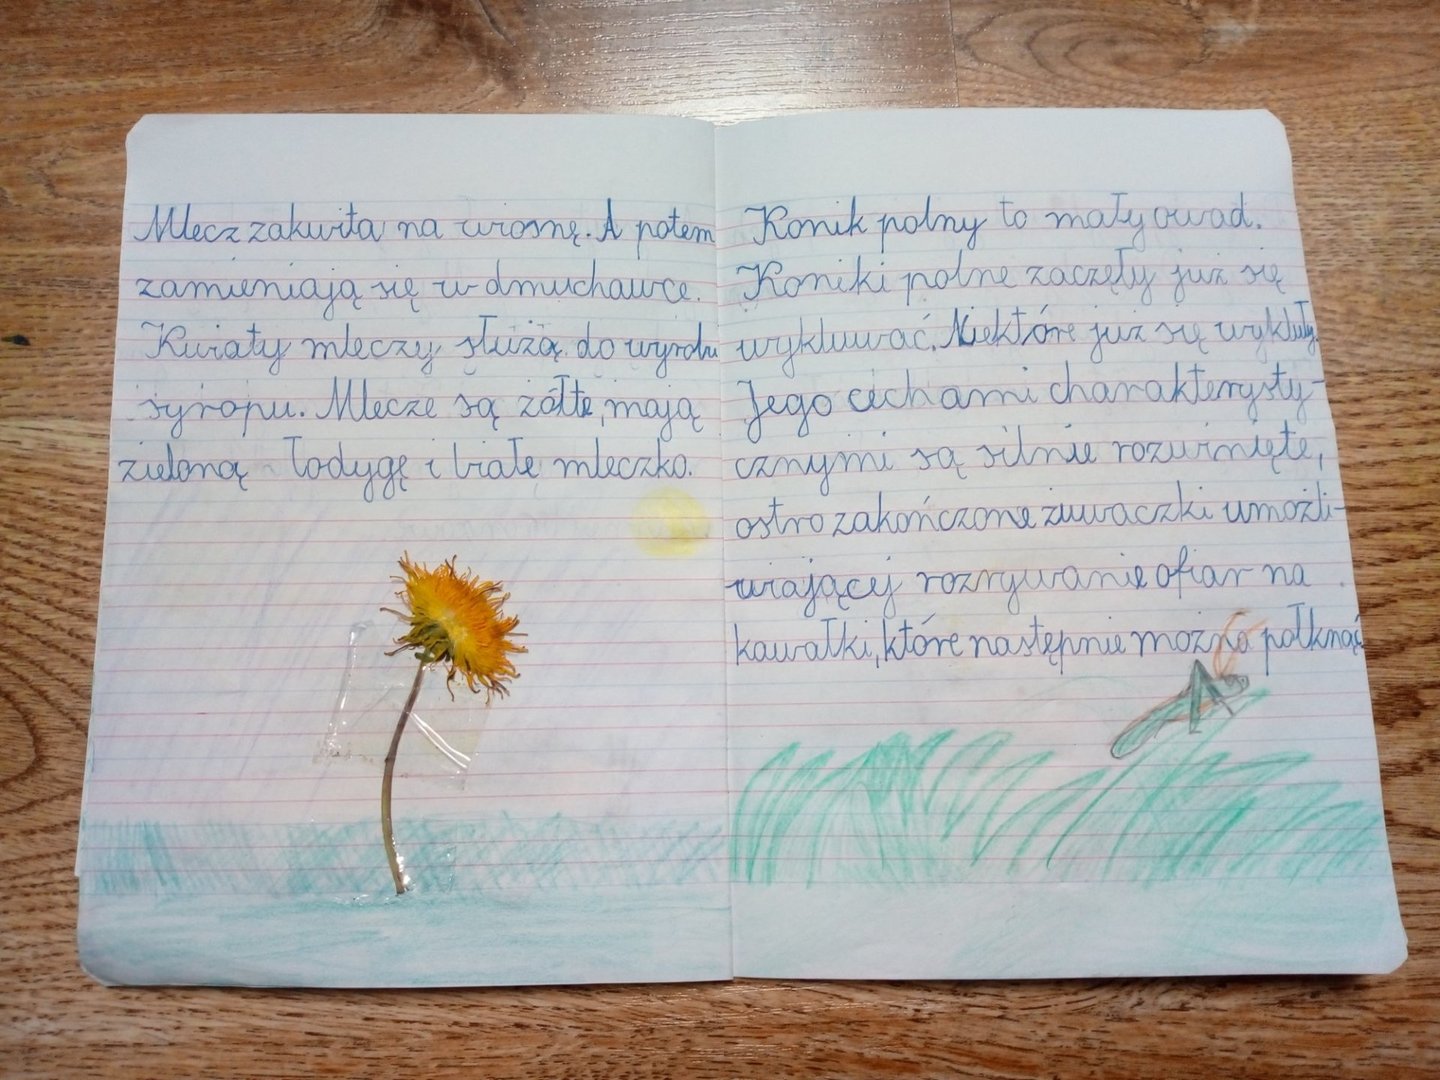 Mlecz zakwita na wiosnę. A potem
zamieniają się w dmuchawce.
Kwiaty mleczy służą do wyrobu
syropu. Mlecze są żółte, mają
zieloną łodygę i białe mleczko.
Konik polny to mały owad.
Koniki polne zaczęły już się
wykluwać. Niektóre już się wykluły.
Jego cechami charakterysty-
cznymi są silnie rozwinięte,
ostro zakończone żuwaczki umożli-
wiającej rozrywanie ofiar na
kawałki, które następnie można połknąć